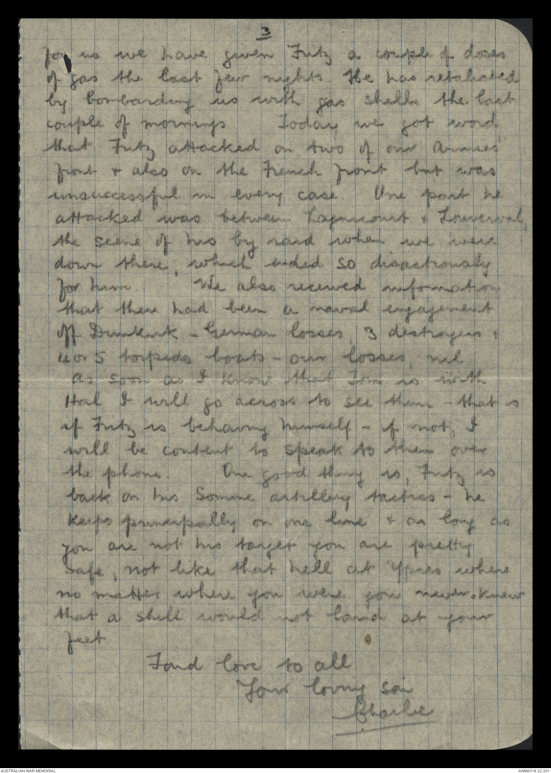 3
for us we have given Fritz a couple of doses
of gas the last few nights. He has retaliated
by bombarding us with gas shells the last
couple of mornings. Today we got word
that Fritz attacked on two of our Armies
front & also on the French front but was
unsuccessful in every case. One part he
attacked was between Lagnicourt & Louverval,
the scene of his big raid when we were
down there, which ended so disastrously
for him. We also received information
that there had been a naval engagement
off Dunkirk - German losses, 3 destroyers &
4 or 5 torpedo boats - our losses, nil.
As soon as I know that Tom is with
Hal I will go across to see them - that is
if Fritz is behaving himself - if not, I
will be content to speak to them over
the phone. One good thing is, Fritz is
back on his Somme artillery tactics - he
keeps principally on one line & as long as
you are not his target you are pretty
safe, not like that hell at Ypres where
no matter where you were you never knew
that a shell would not land at your
feet.
Fond love to all
Your loving son
Charlie
AUSTRALIAN WAR MEMORIAL